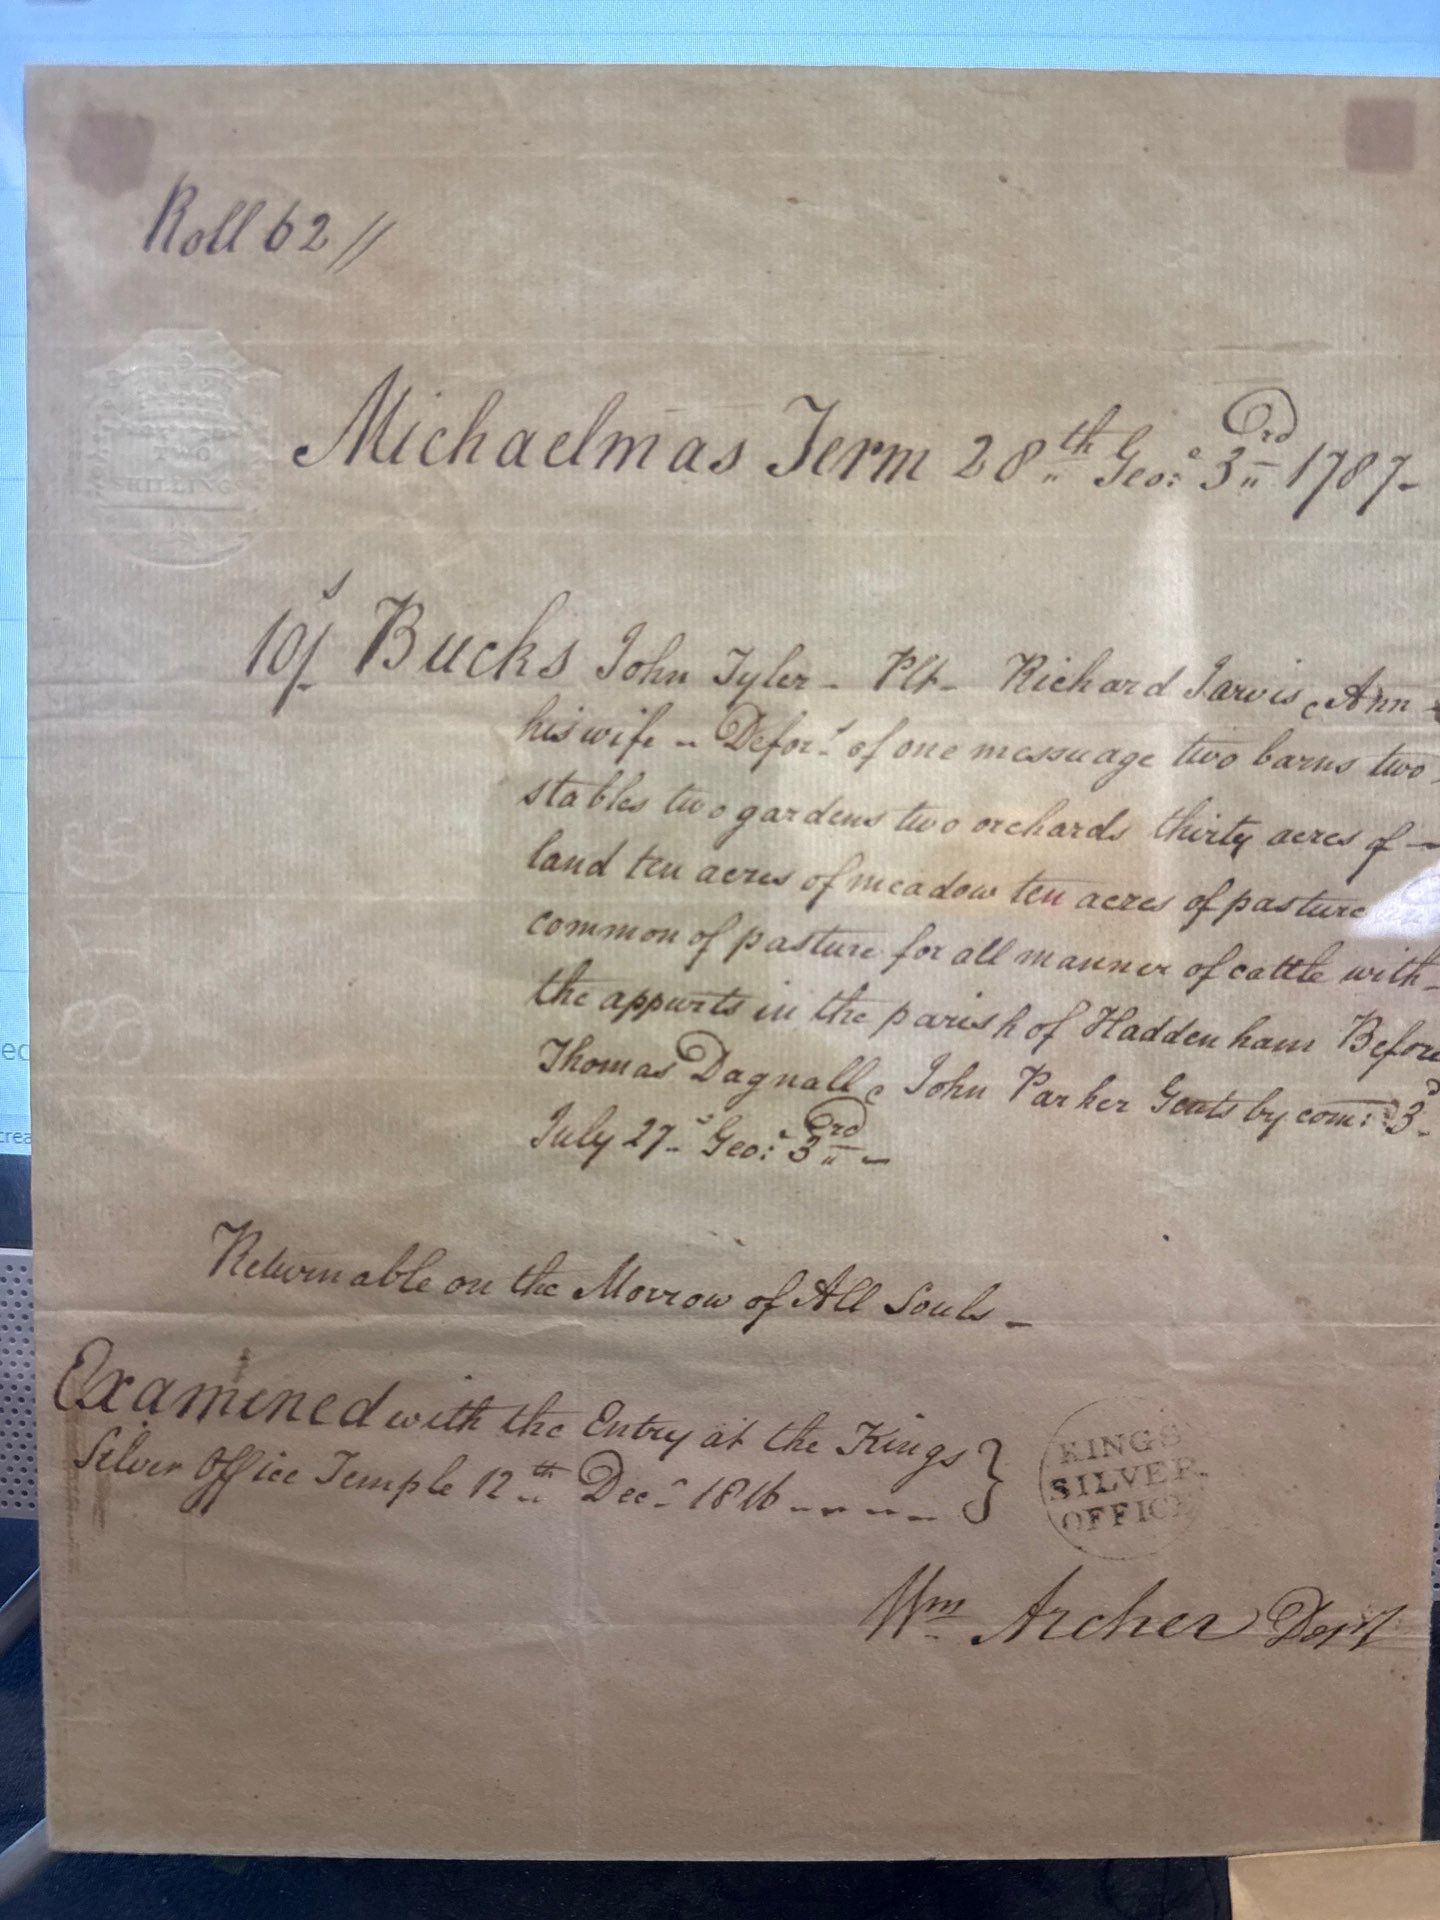 Roll 62 //
TWO
SHILLING
Michaelmas Term 28th Geo: 3rd 1787-
10/s Bucks John Tyler - Plt - Richard Jarvis & Ann
his wife - Defors of one messuage two barns two
stables two gardens two orchards thirty acres of -
land ten acres of meadow ten acres of pasture
common of pasture for all manner of cattle with -
the appurts in the parish of Haddenham Before
Thomas Dagnall & John Parker Gents by com: 3d
July 27 Geo: 3rd -
Returnable on the Morrow of All Souls -
Examined with the Entry at the Kings
Silver Office Temple 12th Dec. 1816 - - - -
KINGS
SILVER
OFFICE
Wm Archer Depy